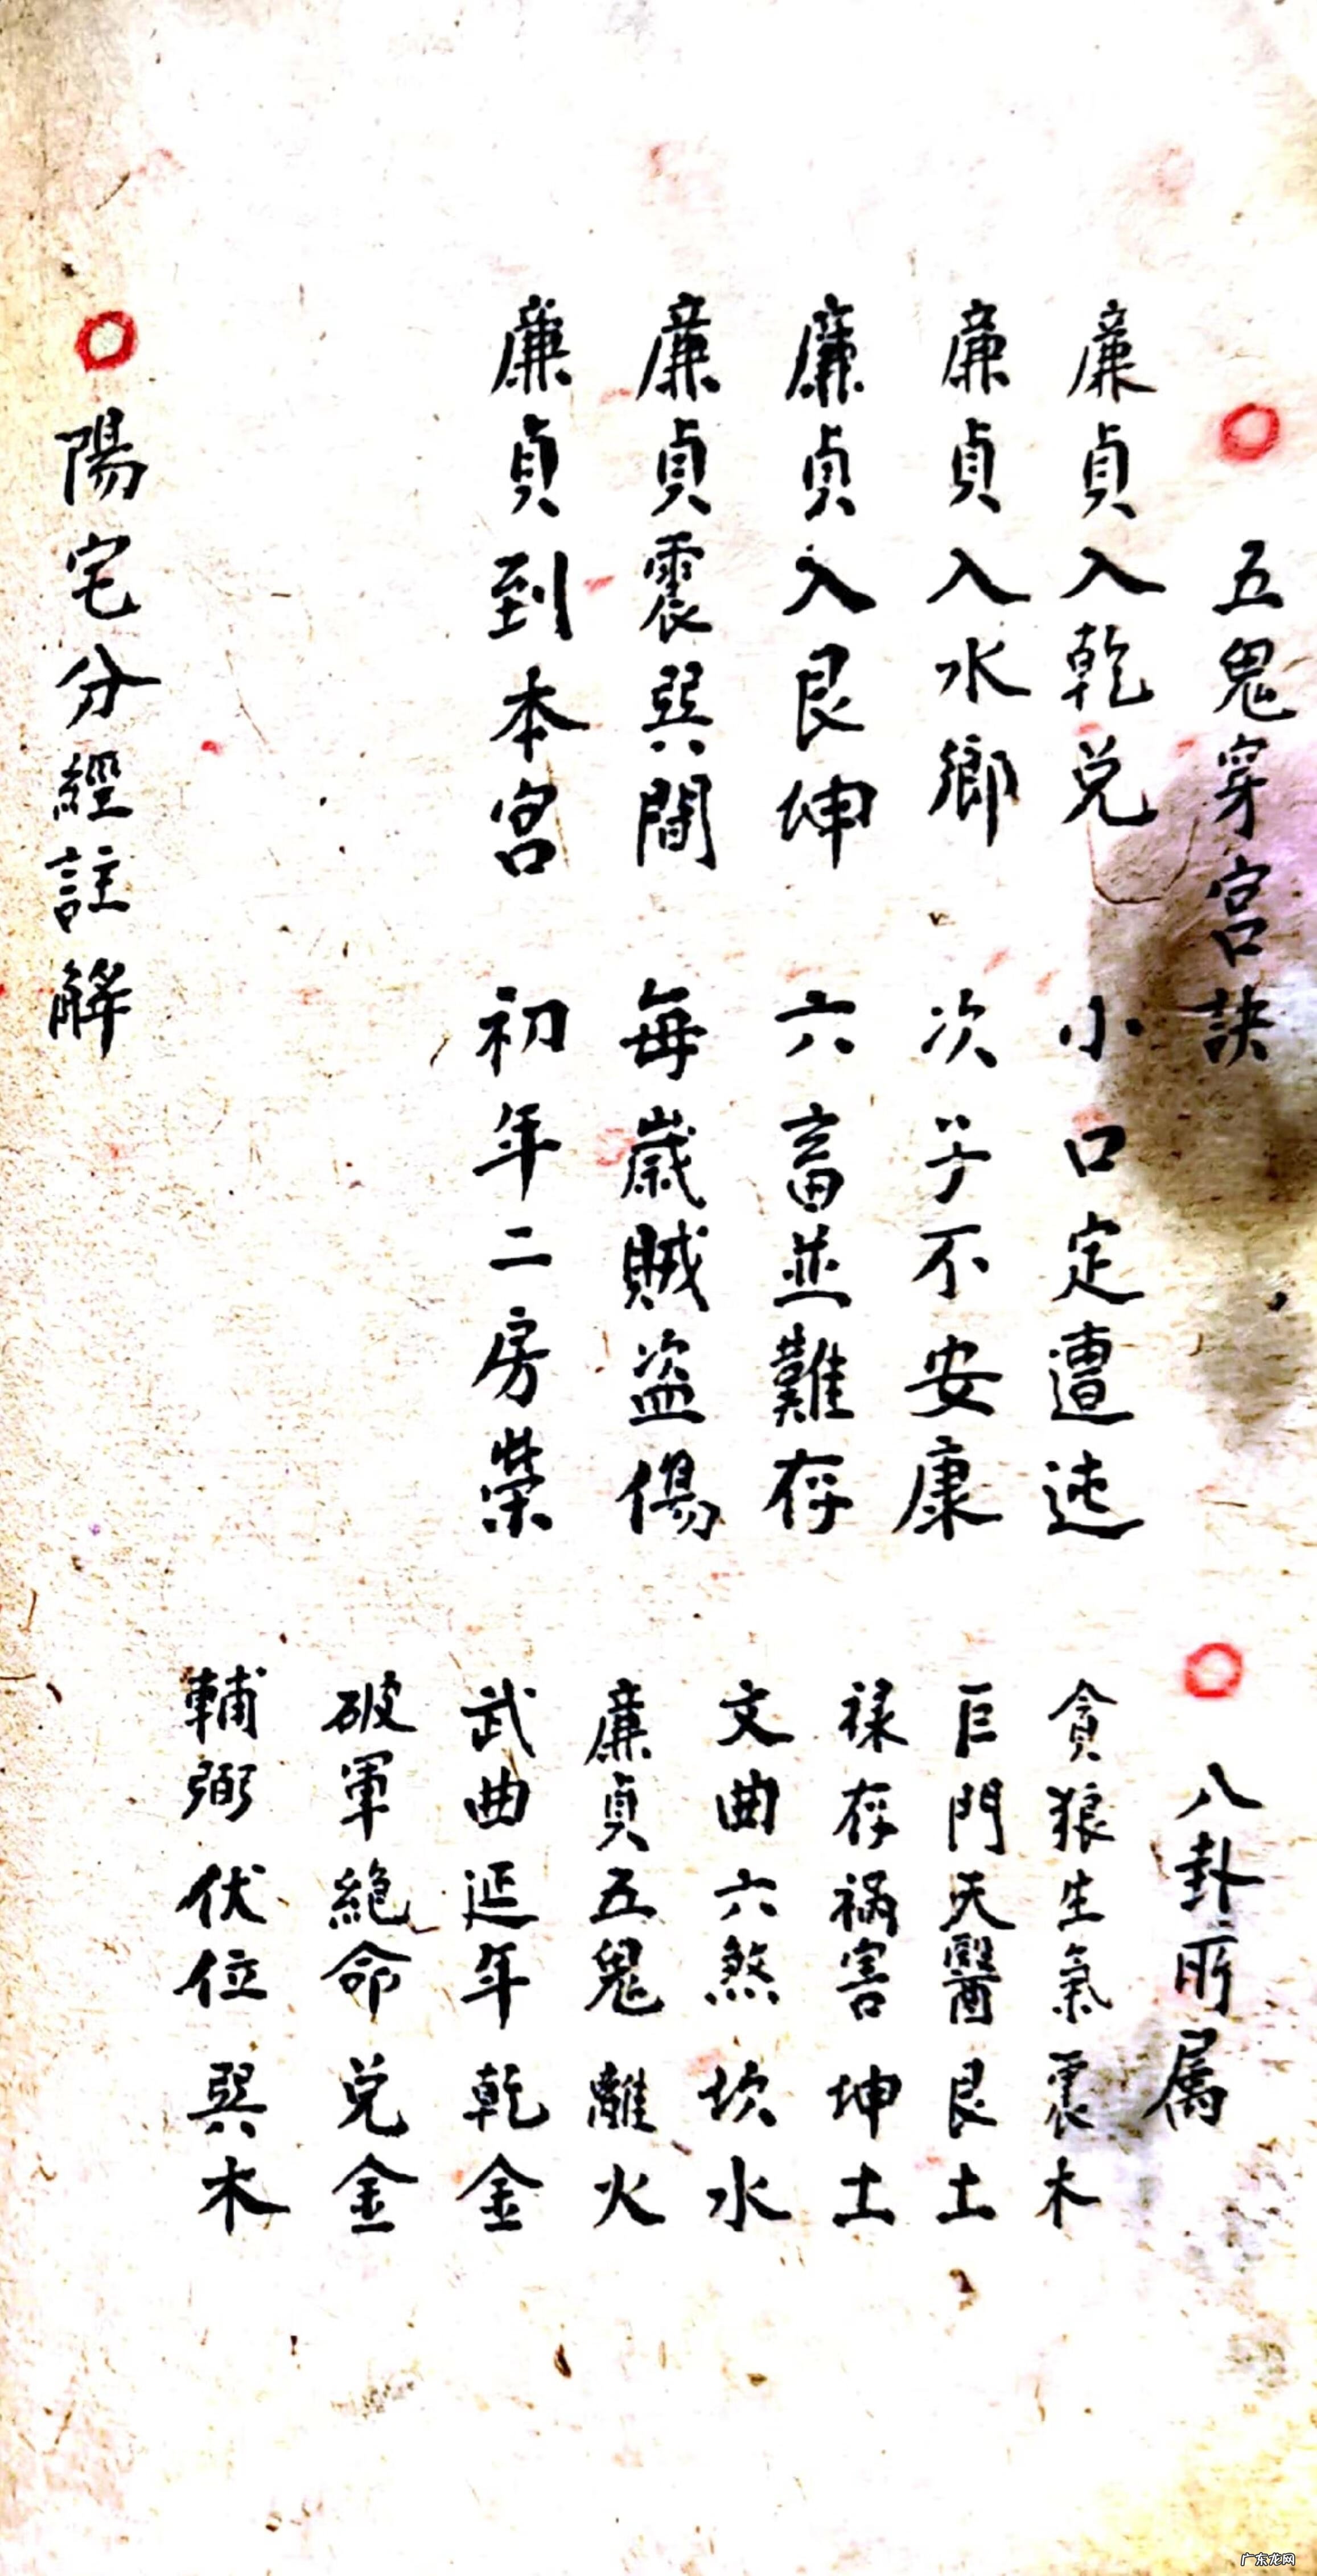 五鬼穿宮訣
廉貞入乾兌 小口定遭迍
廉貞入水鄉 次子不安康
廉貞入艮坤 六畜並難存
廉貞震巽間 每歲賊盜傷
廉貞到本宮 初年二房榮
八卦所屬
貪狼生氣震木
巨門天醫艮土
祿存禍害坤土
文曲六煞坎水
廉貞五鬼離火
武曲延年乾金
破軍絕命兌金
輔弼伏位巽木
陽宅分經註解
广东龙网